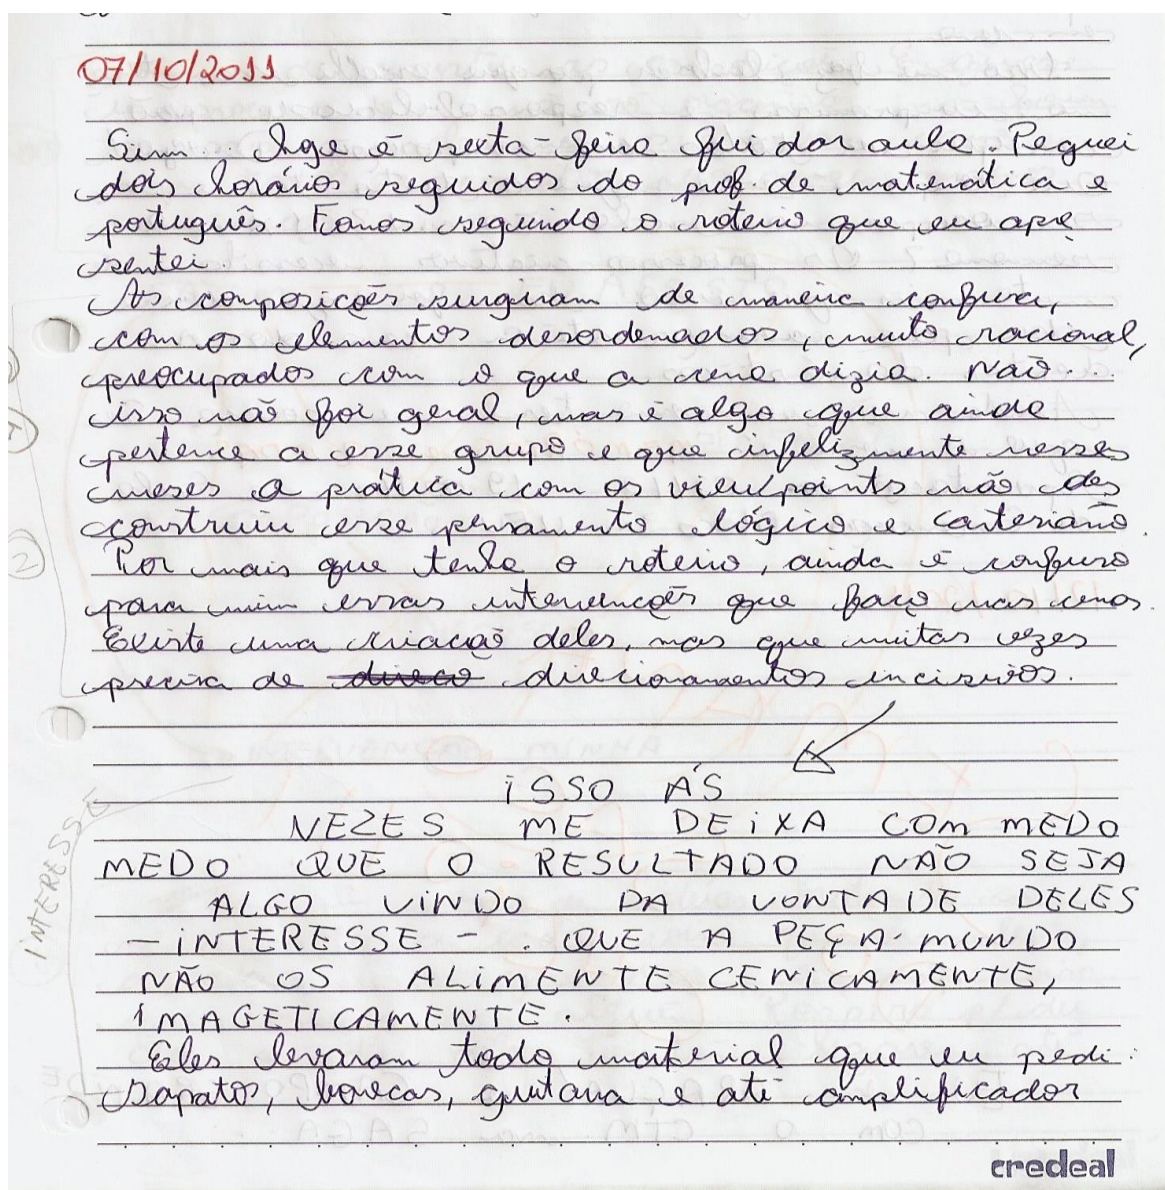 07/10/2011
Sim. Hoje é sexta-feira fui dar aula. Peguei
dois horários seguidos do prof. de matemática e
português. Fomos seguindo o roteiro que eu apre
sentei.
As composições surgiram de maneira confusa,
com os elementos desordenados, muito racional,
preocupados com o que a cena dizia. Não.
isso não foi geral, mas é algo que ainda
pertence a esse grupo e que infelizmente nesses
meses a prática com os viewpoints não des
construiu esse pensamento lógico e cartesiano.
Por mais que tenha o roteiro, ainda é confuso
para mim essas intervenções que faço nas cenas.
Existe uma criação deles, mas que muitas vezes
precisa de direco direcionamentos incisivos.
ISSO ÁS
VEZES ME DEIXA COM MEDO
MEDO QUE O RESULTADO NÃO SEJA
ALGO VINDO DA VONTADE DELES
- INTERESSE - . QUE A PEÇA-MUNDO
NÃO OS ALIMENTE CENICAMENTE,
IMAGETICAMENTE.
INTERESSE
Eles levaram todo material que eu pedi:
Sapatos, bonecas, guitarra e até amplificador
2
credeal